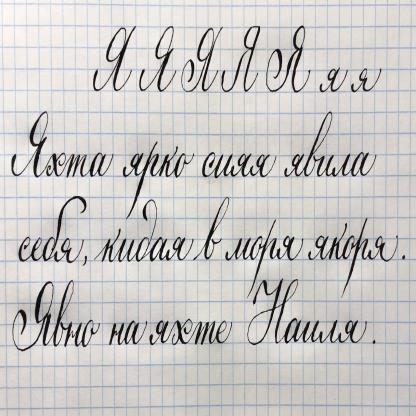 Я Я Я Я Я я я
Яхта ярко сияя явила
себя, кидая в моря якоря.
Явно на яхте Наиля.